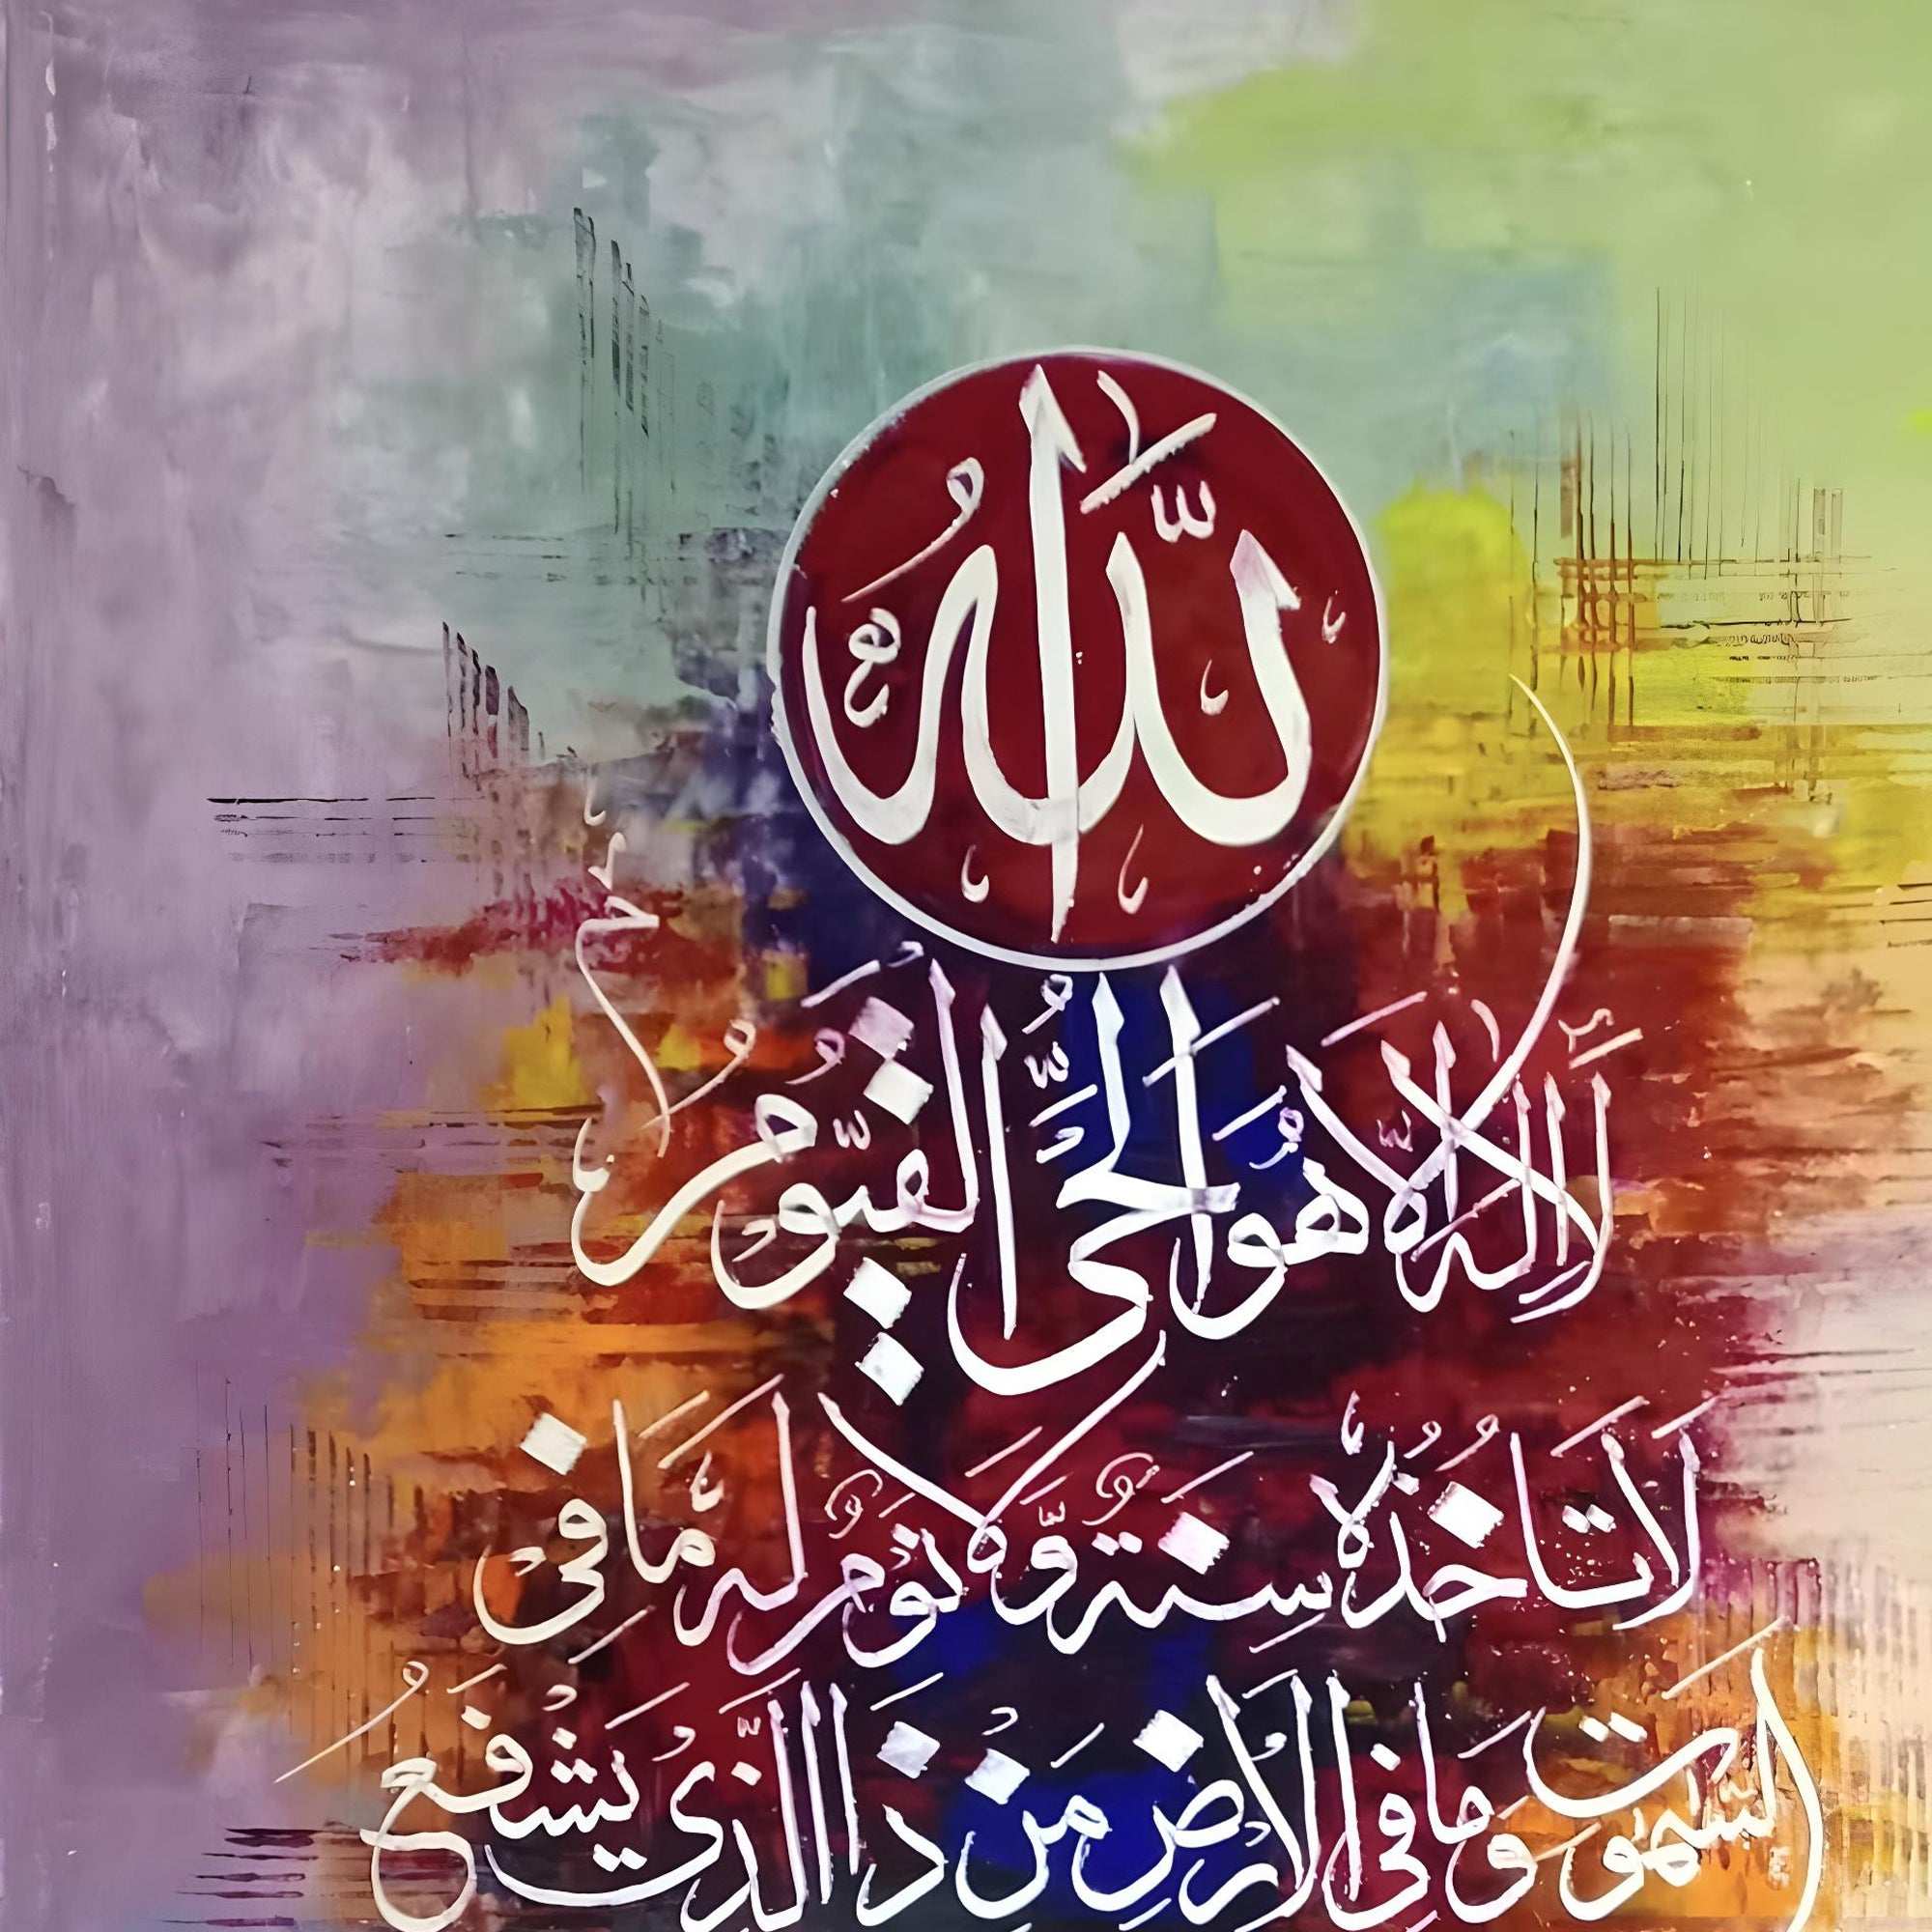 اللّٰهُ
لَا إِلٰهَ إِلَّا هُوَ الْحَيُّ الْقَيُّومُ
لَا تَأْخُذُهُ سِنَةٌ وَّلَا نَوْمٌ لَهُ مَا فِي
السَّمٰوٰتِ وَمَا فِي الْأَرْضِ مَنْ ذَا الَّذِي يَشْفَعُ